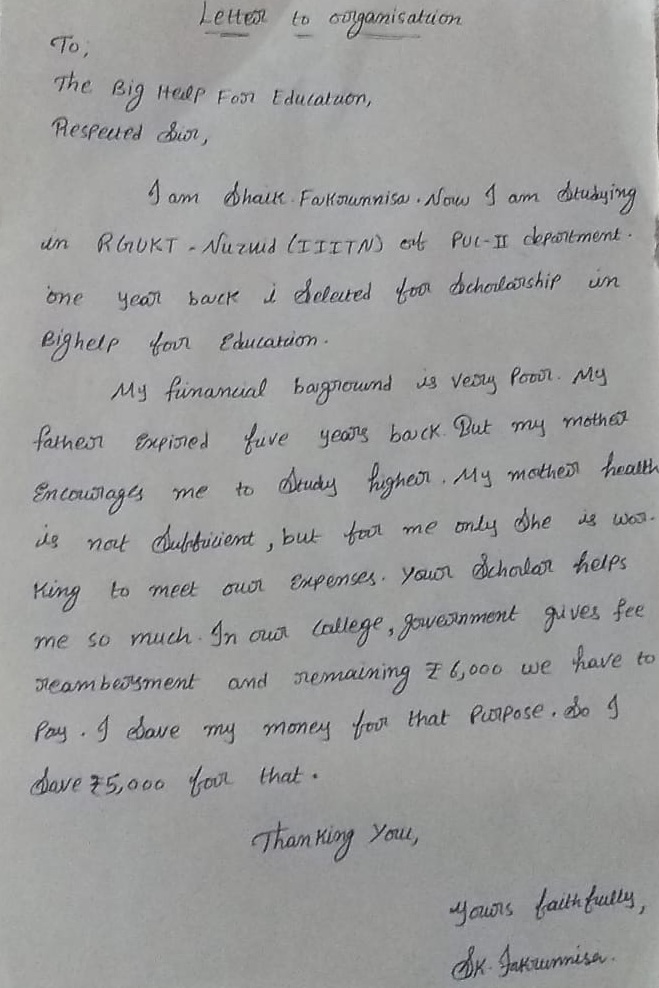 Letter to organisation
To;
The Big Help For Education,
Respected Sir,
I am Shaik. Fakrunnisa. Now I am studying
in RGUKT - Nuzvid (IIITN) at PUC-II department.
one year back i Selected for Scholarship in
Bighelp for Education.
My financial baground is very Poor. My
father Expired five years back. But my mother
Encourages me to Study higher. My mother health
is not Sufficient, but for me only She is wor-
king to meet our expenses. your Scholar helps
me so much. In our college, government gives fee
reambersment and remaining ₹6,000 we have to
Pay. I Save my money for that Purpose. So I
Save ₹5,000 for that.
Thanking You,
Yours faithfully,
SK. Fakrunnisa.